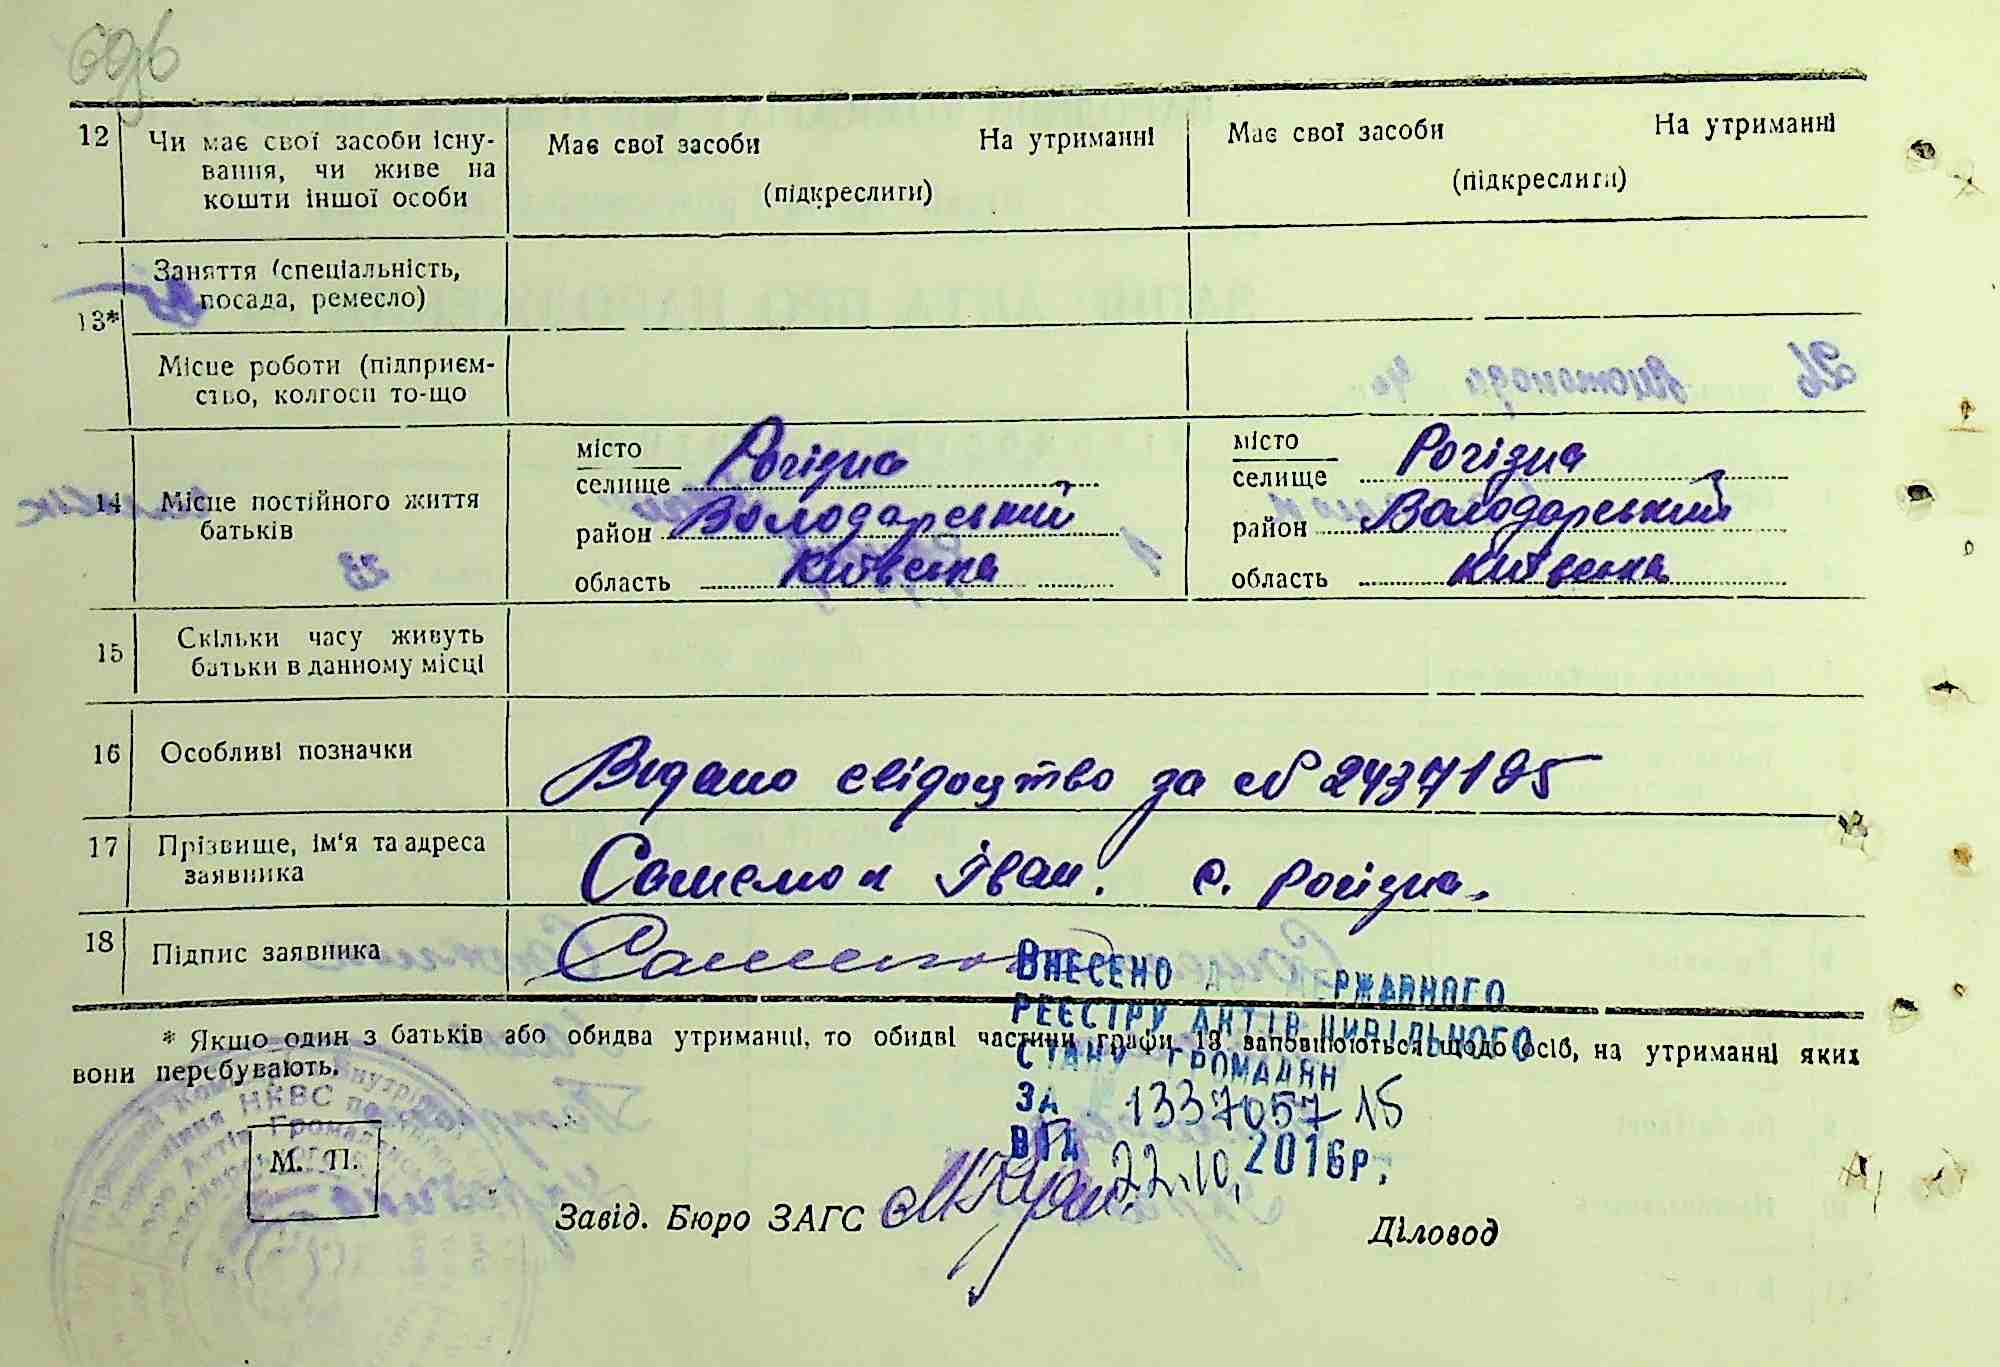 12
Чи має свої засоби існу-
вання, чи живе на
кошти іншої особи
Має свої засоби На утриманні
(підкреслити)
Має свої засоби На утриманні
(підкреслити)
13*
Заняття (спеціальність,
посада, ремесло)
Місце роботи (підприєм-
ство, колгосп то-що
14
Місце постійного життя
батьків
місто
селище Рогізна
район Володарський
область Київська
місто
селище Рогізна
район Володарський
область Київська
15
Скільки часу живуть
батьки в данному місці
16
Особливі позначки
Видано свідоцтво за № 2437195
17
Прізвище, ім'я та адреса
заявника
Іван. с. Рогізна.
18
Підпис заявника
* Якщо один з батьків або обидва утриманці, то обидві частини графи 13 заповнюються щодо осіб, на утриманні яких
вони перебувають.
ВНЕСЕНО ДО ДЕРЖАВНОГО
РЕЄСТРУ АКТІВ ЦИВІЛЬНОГО
СТАНУ ГРОМАДЯН
ЗА 1337057 15
ВІД 22.10. 2016р.
М. П.
Завід. Бюро ЗАГС
Діловод